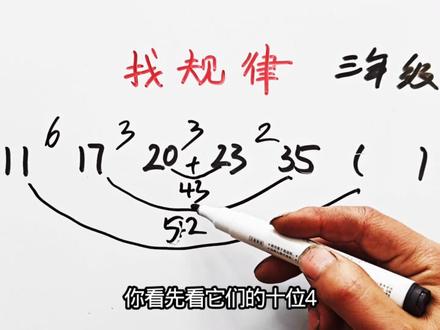 找规律 三年级
6 3 3 2
11 17 20 + 23 35 ( )
43
52
你看先看它们的十位4